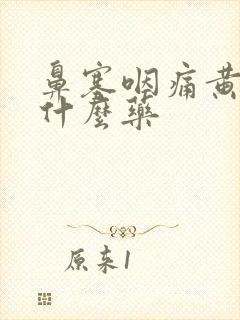 鼻塞咽痛黄
什麽藥
原来1